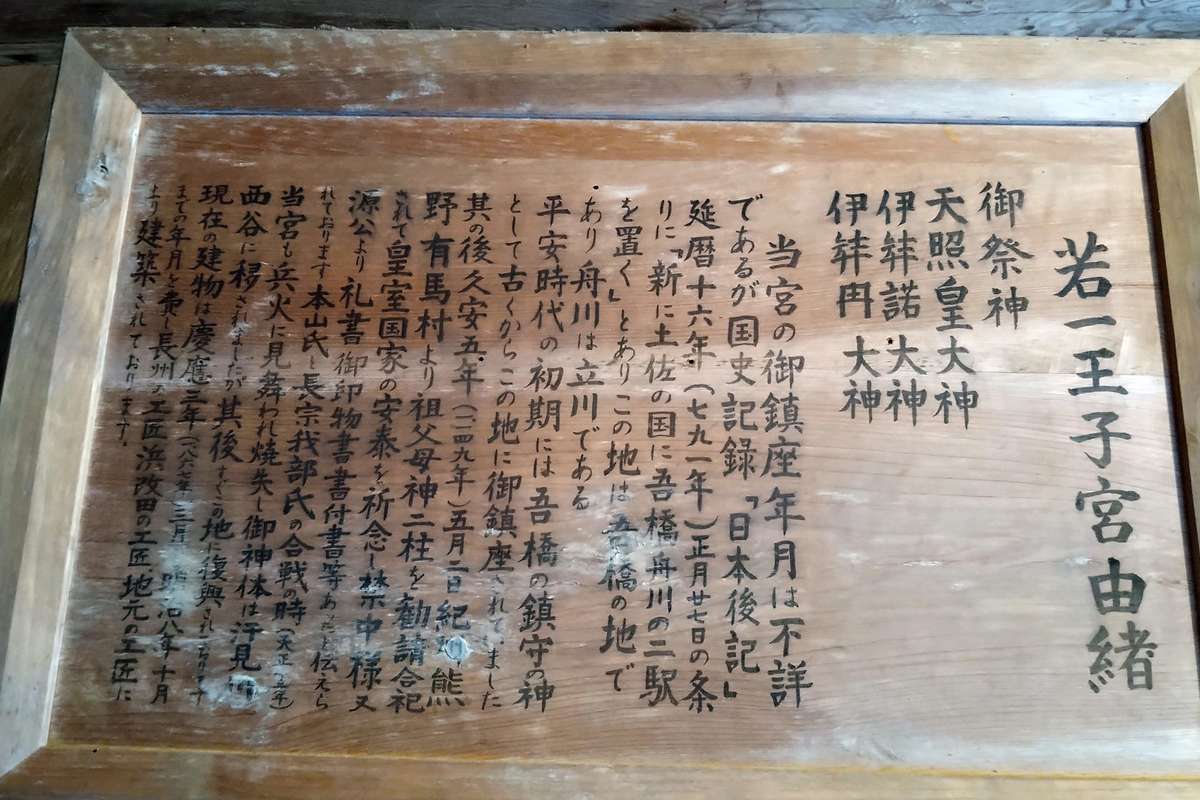 若一王子宮由緒
御祭神
天照皇大神
伊弉諾大神
伊弉冉大神
当宮の御鎮座年月は不詳
であるが国史記録「日本後記」
延暦十六年(七九一年)正月廿七日の条
りに「新に土佐の国に吾橋舟川の二駅
を置く」とありこの地は吾橋の地で
あり舟川は立川である
平安時代の初期には吾橋の鎮守の神
として古くからこの地に御鎮座されていました
其の後久安五年(一一四九年)五月二日紀州熊
野有馬村より祖父母神二柱を勧請合祀
されて皇室国家の安泰を祈念し禁中様又
源公より礼書御印物書書付書等あったと伝えら
れております本山氏と長宗我部氏の合戦の時(天正年)
当宮も兵火に見舞われ焼失し御神体は汗見
西谷に移されましたが其後すぐこの地に復興されております
現在の建物は慶應三年(一八六年)三月明治八年十月
までの年月を費し長州の工匠浜改田の工匠地元の工匠に
より建築されております